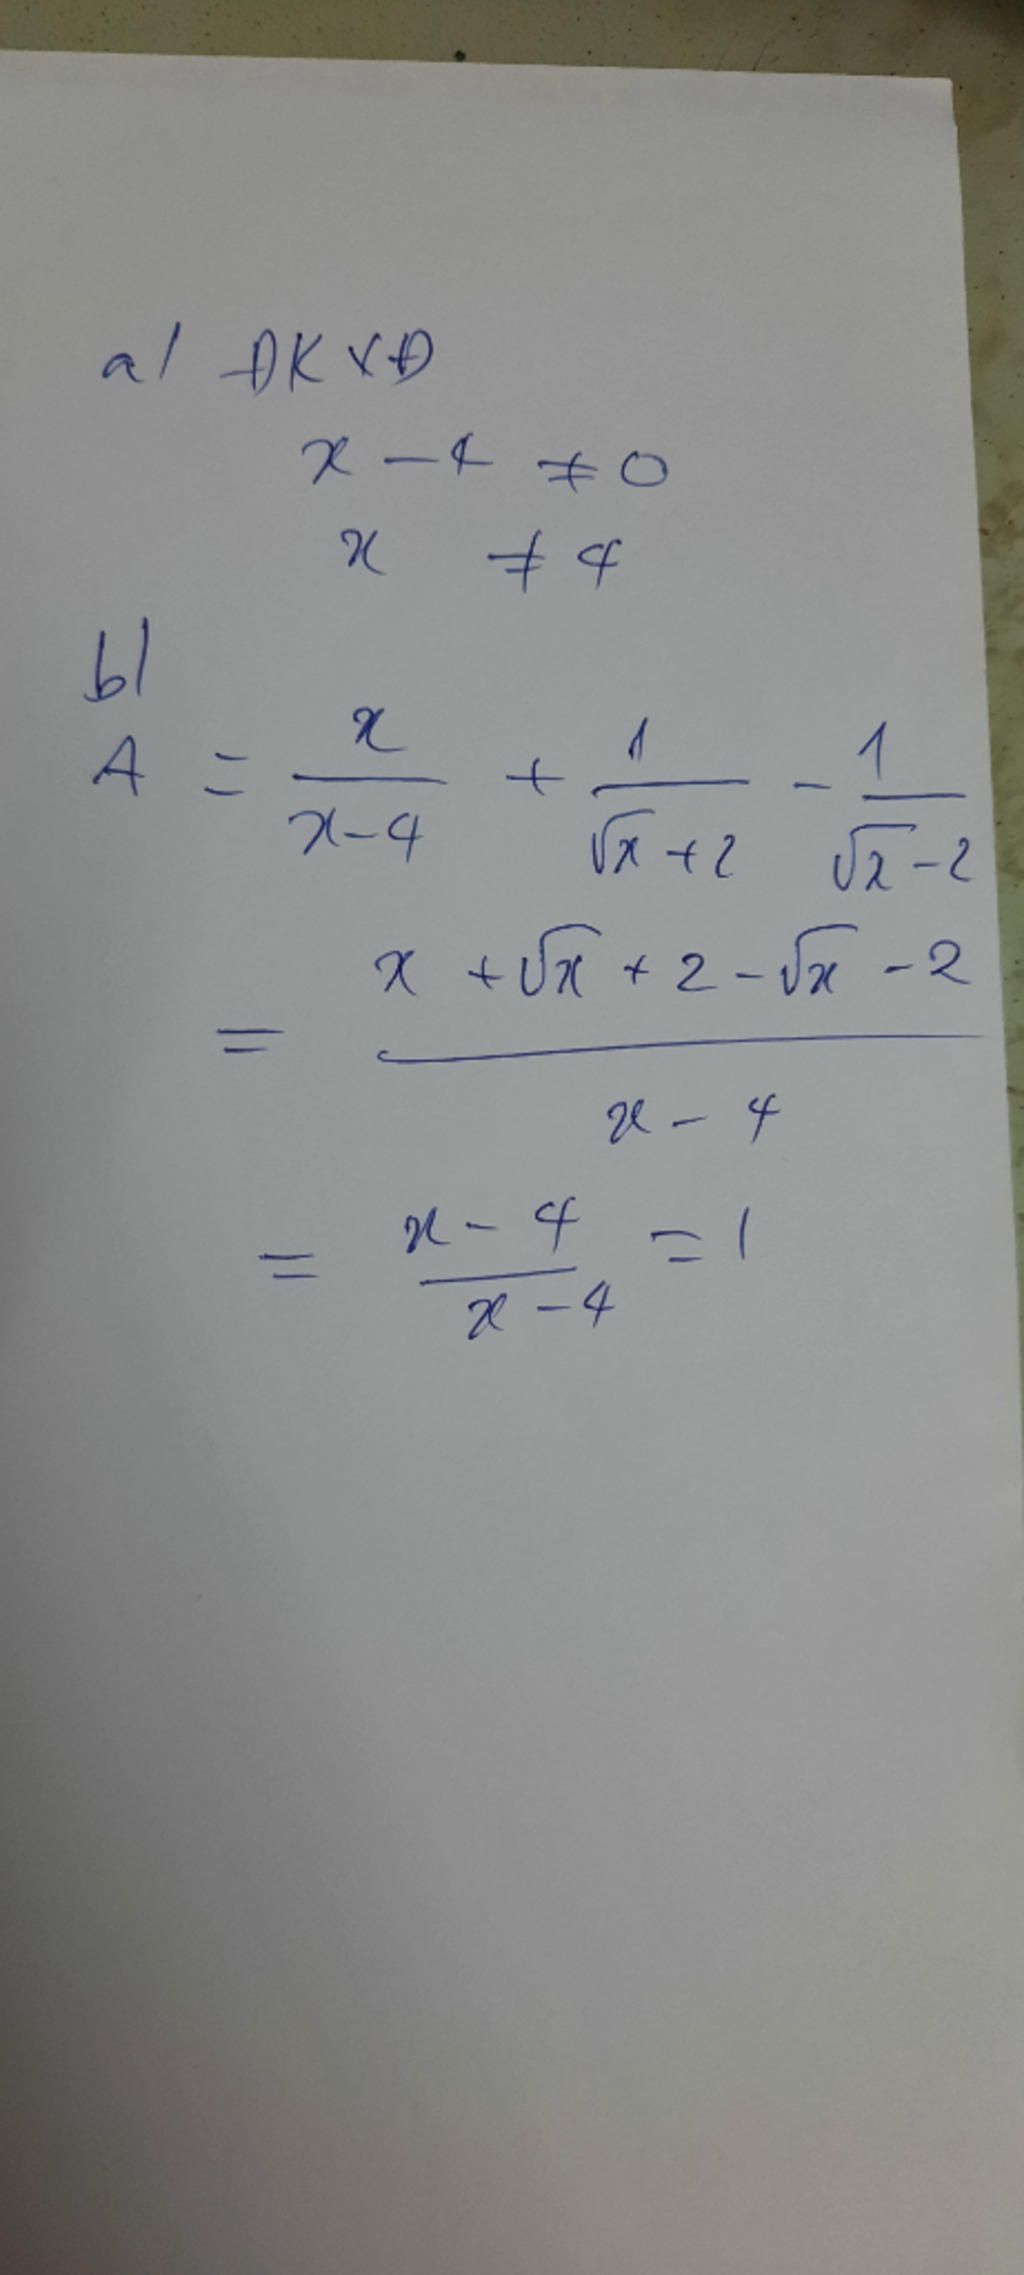 a/ ĐKXĐ
x - 4 ≠ 0
x ≠ 4
b/
A = x/(x-4) + 1/(√x+2) - 1/(√x-2)
= (x + √x + 2 - √x - 2)/(x - 4)
= (x - 4)/(x - 4) = 1